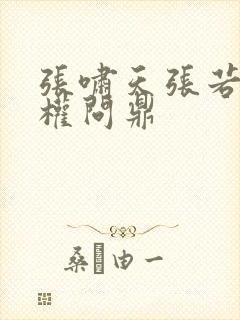 張嘯天張若
權問鼎
桑由一